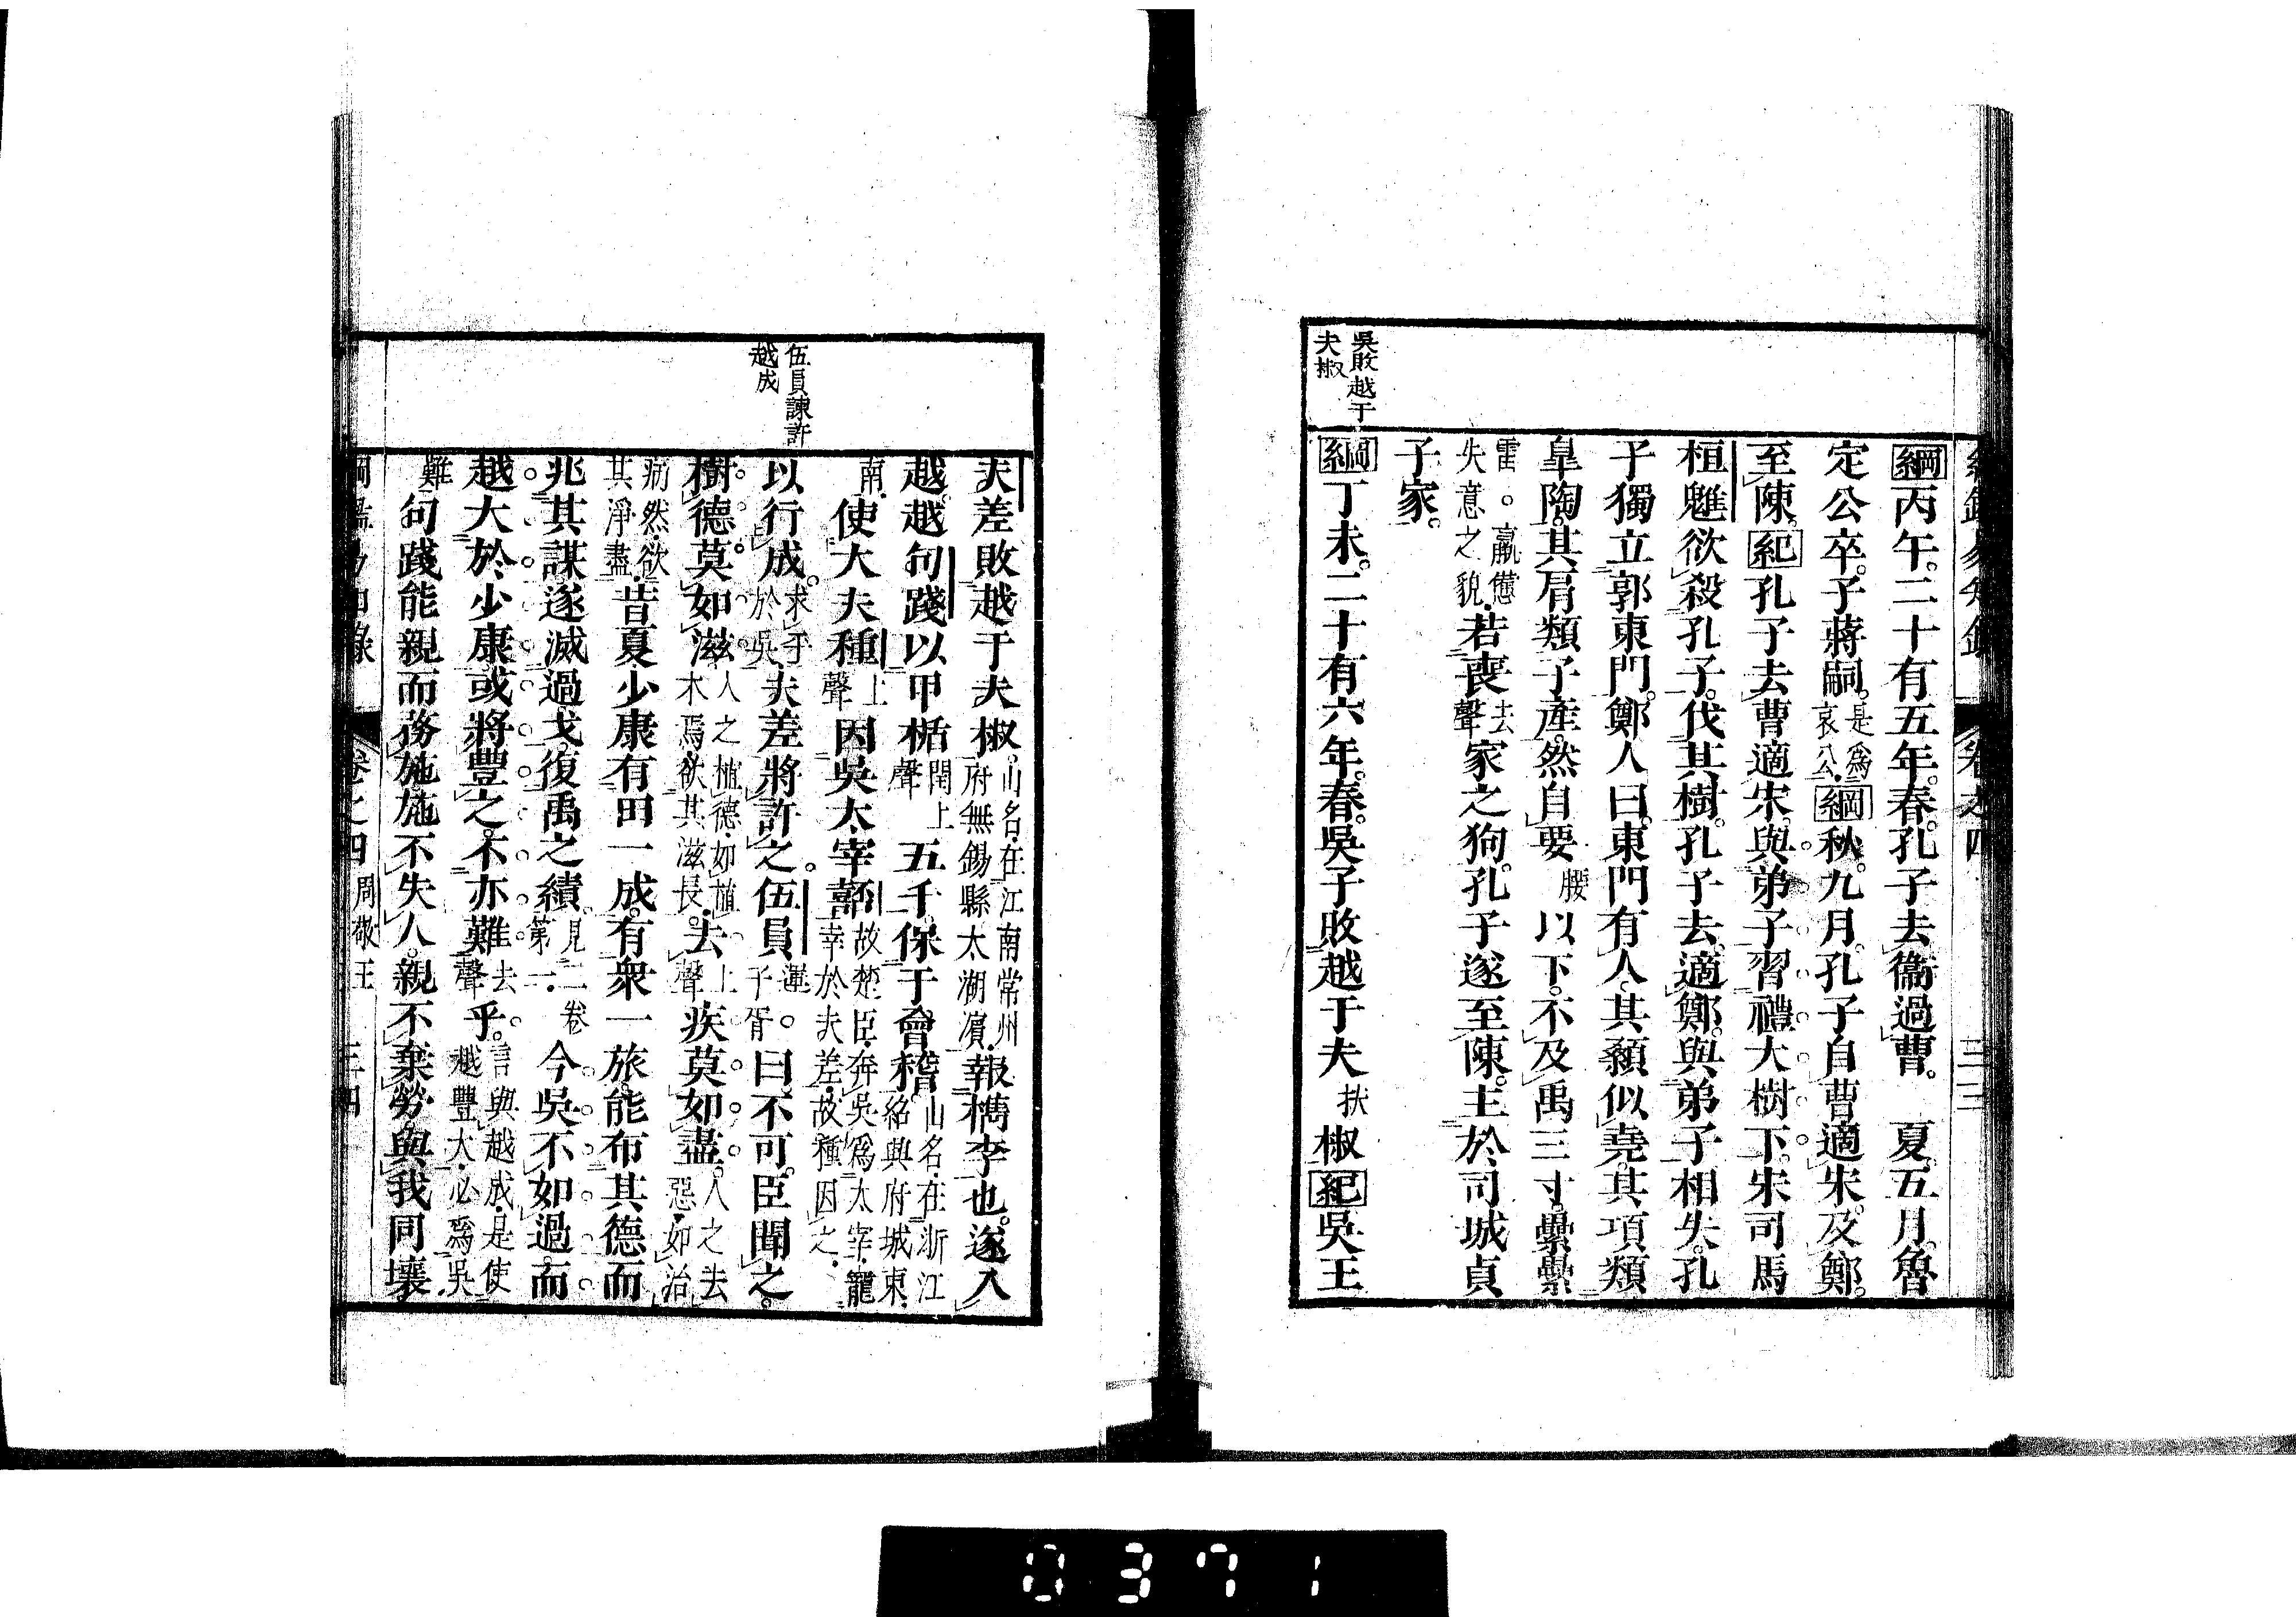 吳敗越于
夫椒
綱丙午。二十有五年。春。孔子去衞過曹。　夏。五月。魯
定公卒。子蔣嗣。是爲哀公。綱秋。九月。孔子自曹適宋。及鄭。
至陳。紀孔子去曹適宋。與弟子習禮大樹下。宋司馬
桓魋欲殺孔子。伐其樹。孔子去。適鄭。與弟子相失。孔
子獨立郭東門。鄭人曰。東門有人。其顙似堯。其項類
皐陶。其肩類子產。然自要腰以下。不及禹三寸。纍纍
雷。羸憊失意之貌。若喪去聲家之狗。孔子遂至陳。主於司城貞
子家。
綱丁未。二十有六年。春。吳子敗越于夫扶椒紀吳王
卷之四
三三
伍員諫許
越成
夫差敗越于夫椒。山名。在江南常州府無錫縣太湖濱。報檇李也。遂入
越。越句踐以甲楯閏上聲五千。保于會稽。山名。在浙江紹興府城東
南。使大夫種上聲因吳太宰嚭故楚臣。奔吳爲太宰。寵幸於夫差。故種因之。
以行成。求于於吳。夫差將許之。伍員運。子胥。曰。不可。臣聞之。
樹德莫如滋。人之植德。如植木焉。欲其滋長。去上聲疾莫如盡。人之去惡。如治
病然。欲其淨盡。昔夏少康有田一成。有衆一旅。能布其德。而
兆其謀。遂滅過戈。復禹之績。見二卷第一。今吳不如過。而
越大於少康。或將豐之。不亦難去聲乎。言與越成。是使越豐大。必爲吳
難。句踐能親而務施。施不失人。親不棄勞。與我同壤。
卷之四　周敬王　三四
0371